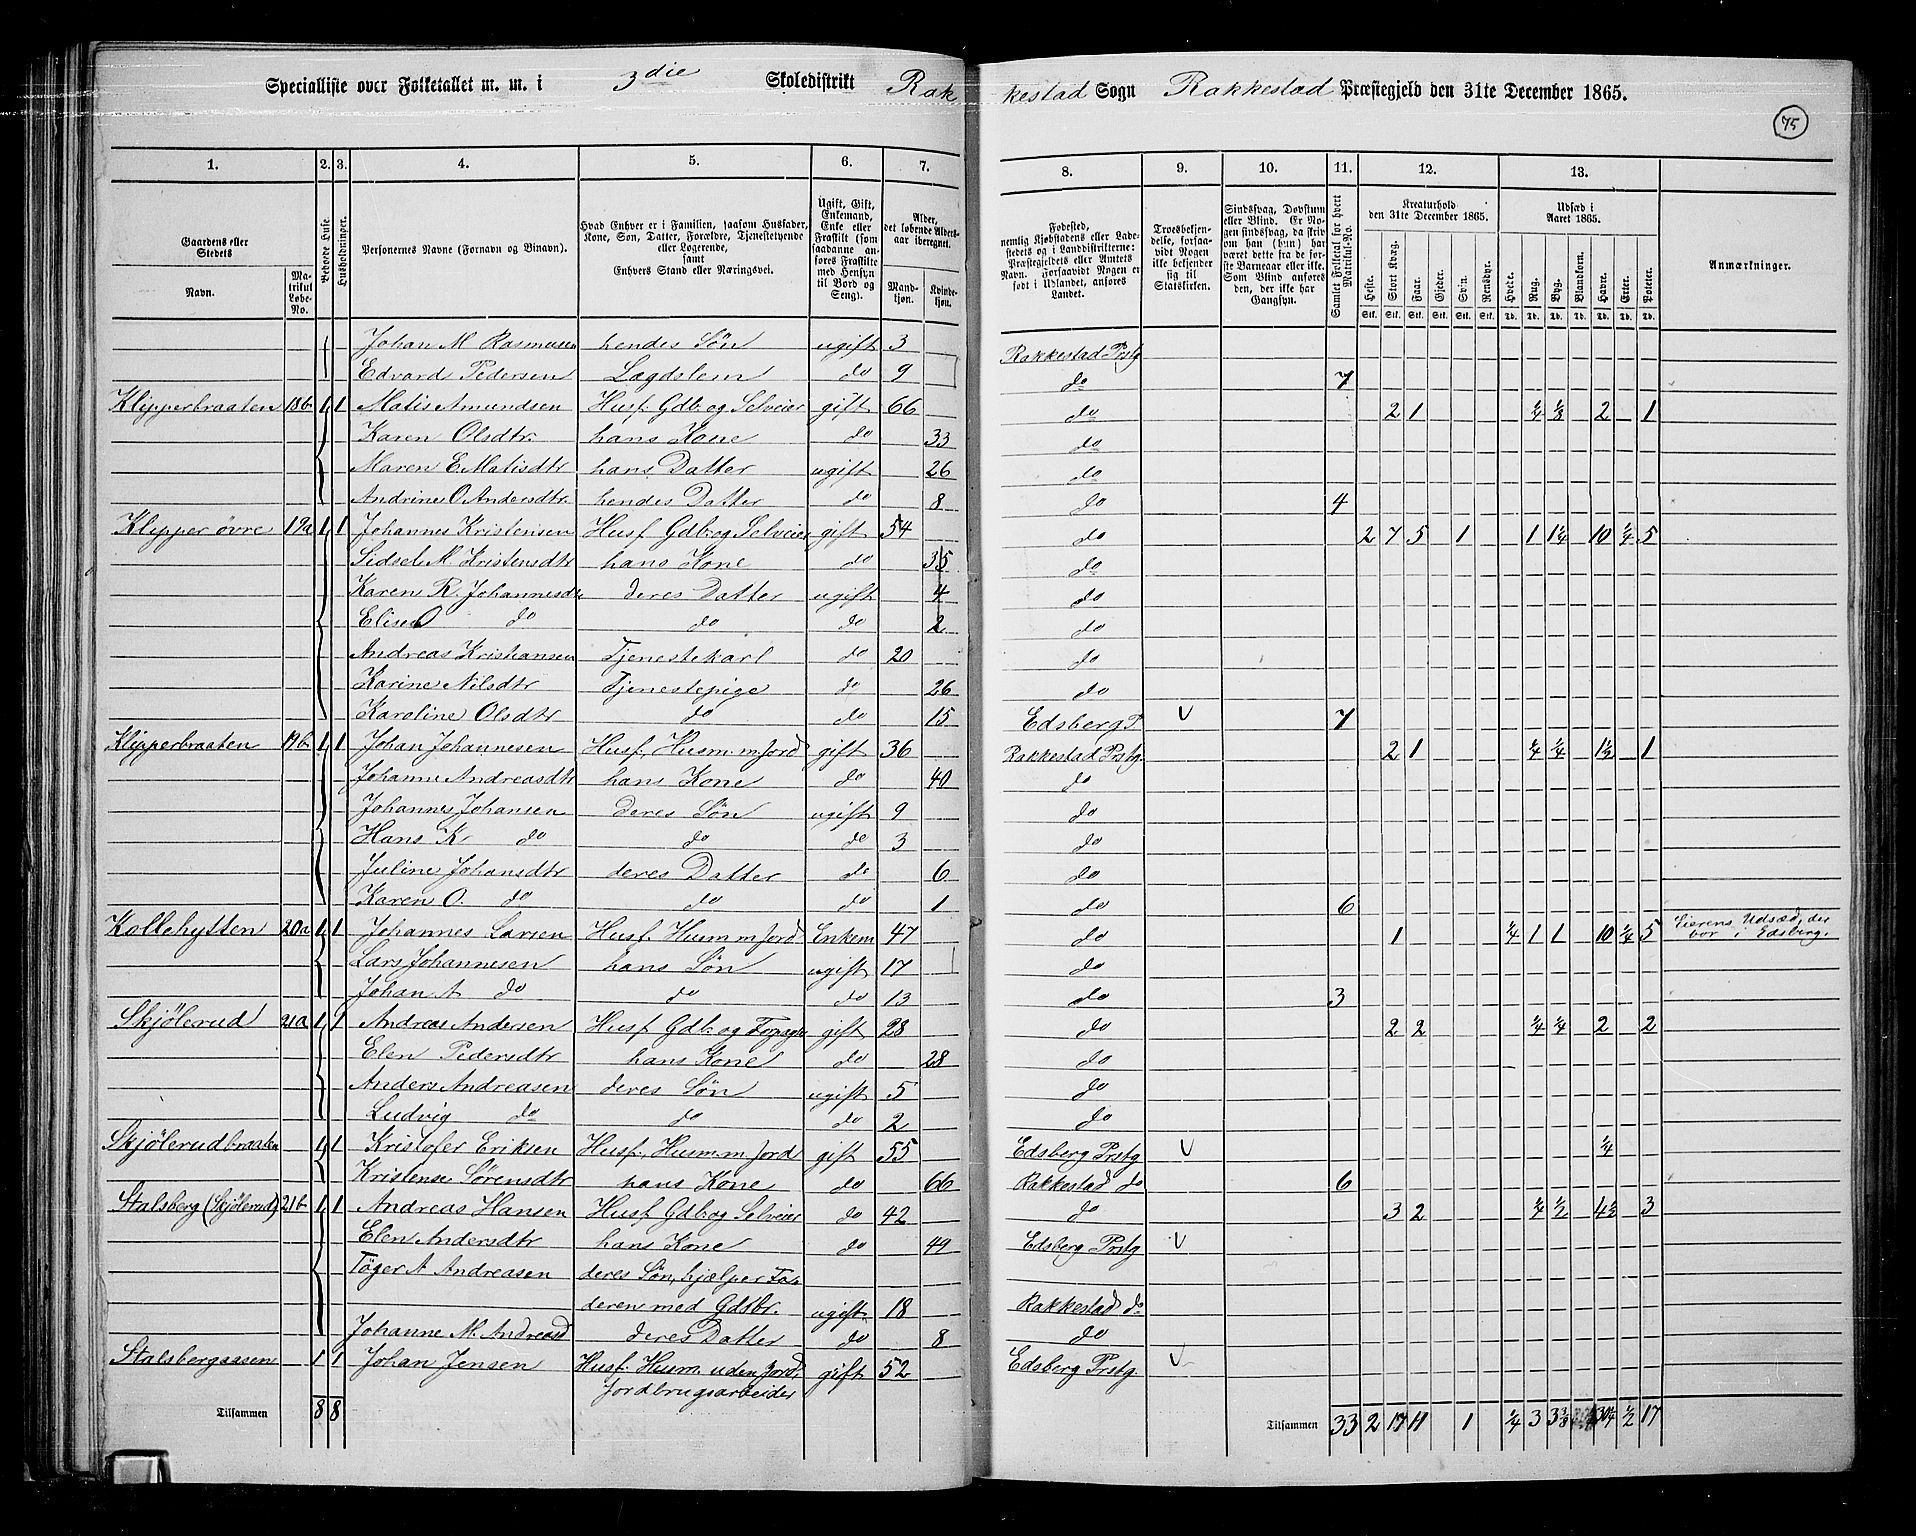 Specialliste over Folketallet m. m. i 3die Skoledistrikt Rakkestad Sogn Rakkestad Præstegjeld den 31te December 1865.
75
1. 2. 3. 4. 5. 6. 7. 8. 9. 10. 11. 12. 13.
Gaardens eller Stedets Navn. Matrikul Løbe-No. Beboede Huse. Husholdninger. Personernes Navne (Fornavn og Binavn). Hvad Enhver er i Familien, saasom Husfader, Kone, Søn, Datter, Forældre, Tjenestetyende eller Logerende, samt Enhvers Stand eller Næringsvei. Ugift, Gift, Enkemand, Enke eller Fraskilt (som saadanne anføres Fraskilte med Hensyn til Bord og Seng). Alder, det løbende Aldersaar iberegnet. Mandkjøn. Kvindekjøn.
Fødested, nemlig Kjøbstadens eller Ladestedets og i Landdistrikterne: Præstegjeldets eller Amtets Navn. Forsaavidt Nogen er født i Udlandet, anføres Landet. Troesbekjendelse, forsaavidt Nogen ikke bekjender sig til Statskirken. Sindssvag, Døvstum eller Blind. Er Nogen sindssvag, da skrives om han (hun) har været dette fra de første Barneaar eller ikke. Som Blind anføres den, der ikke har Gangsyn. Samlet Folketal for hvert Matrikul-No. Kreaturhold den 31te December 1865. Heste. Stort Kvæg. Faar. Gjeder. Svin. Rensdyr. Udsæd i Aaret 1865. Hvede. Rug. Byg. Blandkorn. Havre. Erter. Poteter. Anmærkninger.
Stk. Stk. Stk. Stk. Stk. Stk. Td. Td. Td. Td. Td. Td. Td.
Johan M Rasmusen hendes Søn ugift 3 Rakkestad Prstg
Edvard Pedersen Lægdslem do 9 do 7
Klipperbraaten 18b 1 1 Matis Amundsen Husf. Gdb. og Selveier gift 66 do 2 1 ¼ ⅛ 2 1
Karen Olsdtr. hans Kone do 33 do
Maren E. Matisdtr hans Datter ugift 26 do
Andrine O. Andersdtr. hendes Datter do 8 do 4
Klipper øvre 19a 1 1 Johannes Kristensen Husf. Gdb. og Selveier gift 54 do 2 7 5 1 1 1¼ 10 ¼ 5
Sidsel M. Kristensdtr hans Kone do 35 do
Karen R. Johannesdr deres Datter ugift 4 do
Elise O do do do 2 do
Andreas Kristiansen Tjenestekarl do 20 do
Karine Nilsdtr Tjenestepige do 26 do
Karoline Olsdtr do do 15 Edsberg P. V 7
Klipperbraaten 19b 1 1 Johan Johannesen Husf., Husm. m. Jord gift 36 Rakkestad Prstg. 2 1 ¼ ¼ 1½ 1
Johanne Andreasdtr hans Kone do 40 do
Johannes Johansen deres Søn ugift 9 do
Hans K. do do do 3 do
Juline Johansdtr deres Datter do 6 do
Karen O. do do do 1 do 6
Kollehytten 20a 1 1 Johannes Larsen Husf. Husm. m. Jord Enkem 47 do 1 ¼ 1 1 10 ¼ 5 Eierens Udsæd, der
bor i Edsberg.
Lars Johannesen hans Søn ugift 17 do
Johan A. do do do 13 do 3
Skjølerud 21a 1 1 Andreas Andersen Husf. Gdb. og gift 28 do 2 2 ¼ ¼ 2 2
Elen Pedersdtr hans Kone do 28 do
Anders Andreasen deres Søn ugift 5 do
Ludvig do do do 2 do
Skjølerudbraaten 1 1 Kristofer Eriksen Husf., Husm. m. Jord gift 55 Edsberg Prstg V ¼
Kristense Sørensdtr hans Kone do 66 Rakkestad do 6
Stalsberg (Skjølerud) 21b 1 1 Andreas Hansen Husf. Gdb. og Selveier do 42 do 3 2 ¼ ½ 4½ 3
Elen Andersdtr hans Kone do 49 Edsberg Prstg V
Töger A Andreasen deres Søn, hjælper Fa-
deren med Gdsbr. ugift 18 Rakkestad do
Johanne M. Andreasd deres Datter do 8 do
Stalsbergaasen 1 1 Johan Jensen Husf. Husm. uden Jord, gift 52 Edsberg Prstg. V
Jordbrugsarbeider
Tilsammen 8 8 Tilsammen 33 2 17 11 1 ¼ 3 3⅜ 30¼ ½ 17